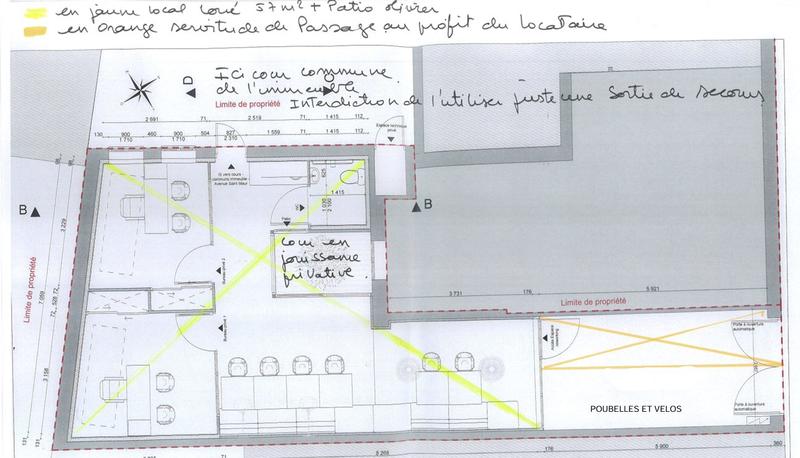 en jaune local loué 57 m² + Patio olivier
en orange servitude de Passage au profit du locataire
Ici cour commune
de l'immeuble
Interdiction de l'utiliser juste une Sortie de secours
D
Limite de propriété
2 691 71 2 519 71 1 415 112
130 900 460 900 504 827 1 559 71 1 415 112
1 710 1 710 2 310
Espace technique
privé
B
B
3 229
Limite de propriété
7 099
72 528 72
3 158
131
Vers cours
communs immeuble -
Avenue Saint Maur
Patio
WC
1 415
625
2 100
Bureau privé 2
Bureau privé 1
cour en
jouissance
privative.
3 731 176 5 921
Limite de propriété
Porte à ouverture
automatique
Porte à ouverture
automatique
POUBELLES ET VELOS
71 5 268 176 5 900 360